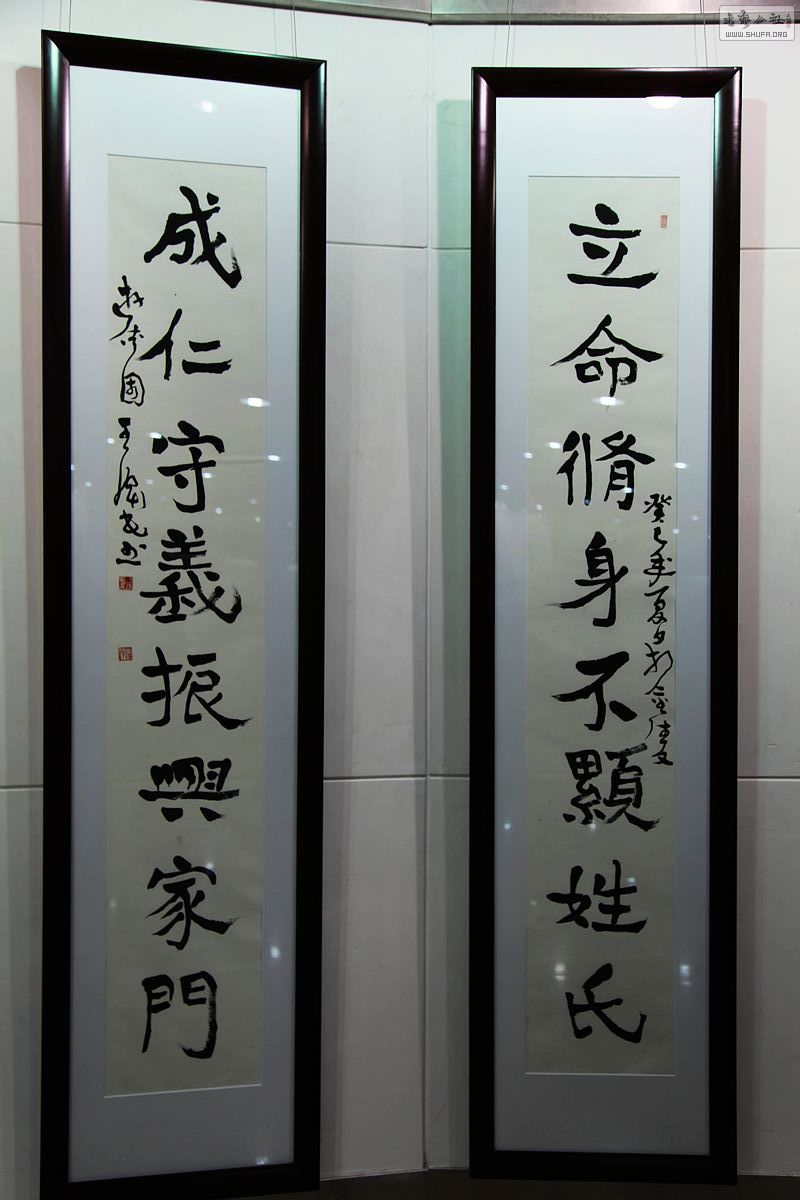 立命脩身不顯姓氏
癸巳年夏月於金陵文
成仁守義振興家門
王
書藝公社
WWW.SHUFA.ORG